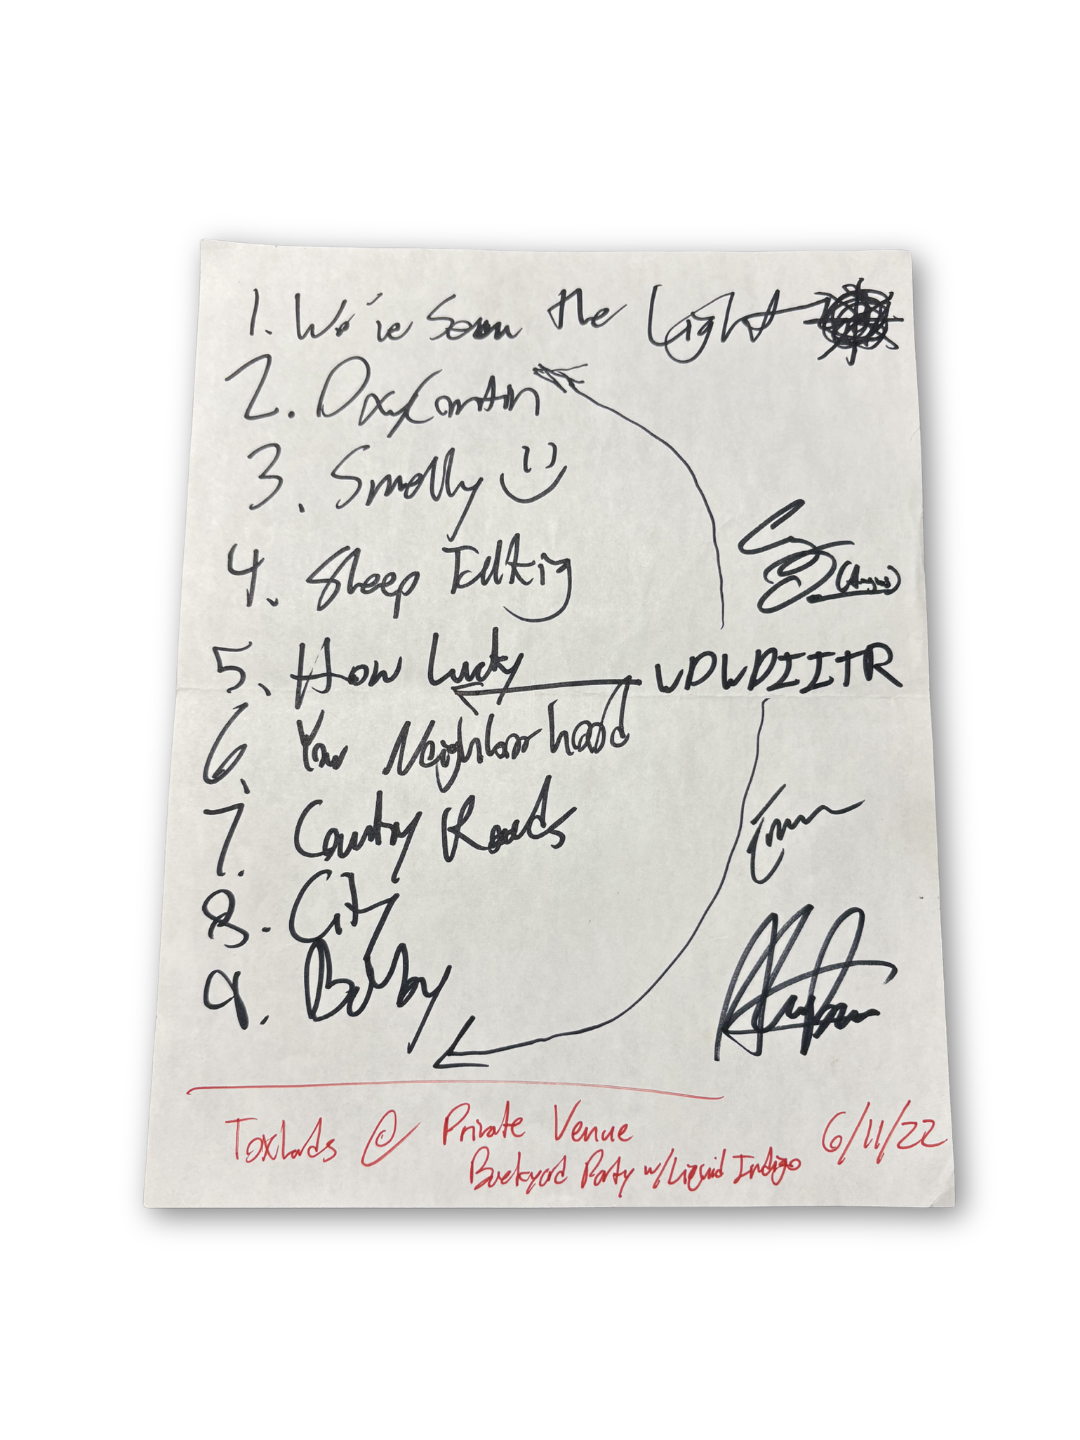 1. We've Seen the Light
2. Oxycontin
3. Smelly
4. Sleep Talking
(Angus)
5. How Lucky
WDWDIITR
6. Your Neighborhood
7. Country Roads
8. City
9. Bobby
Toxhards @ Private Venue 6/11/22
Backyard Party w/ Liquid Indigo